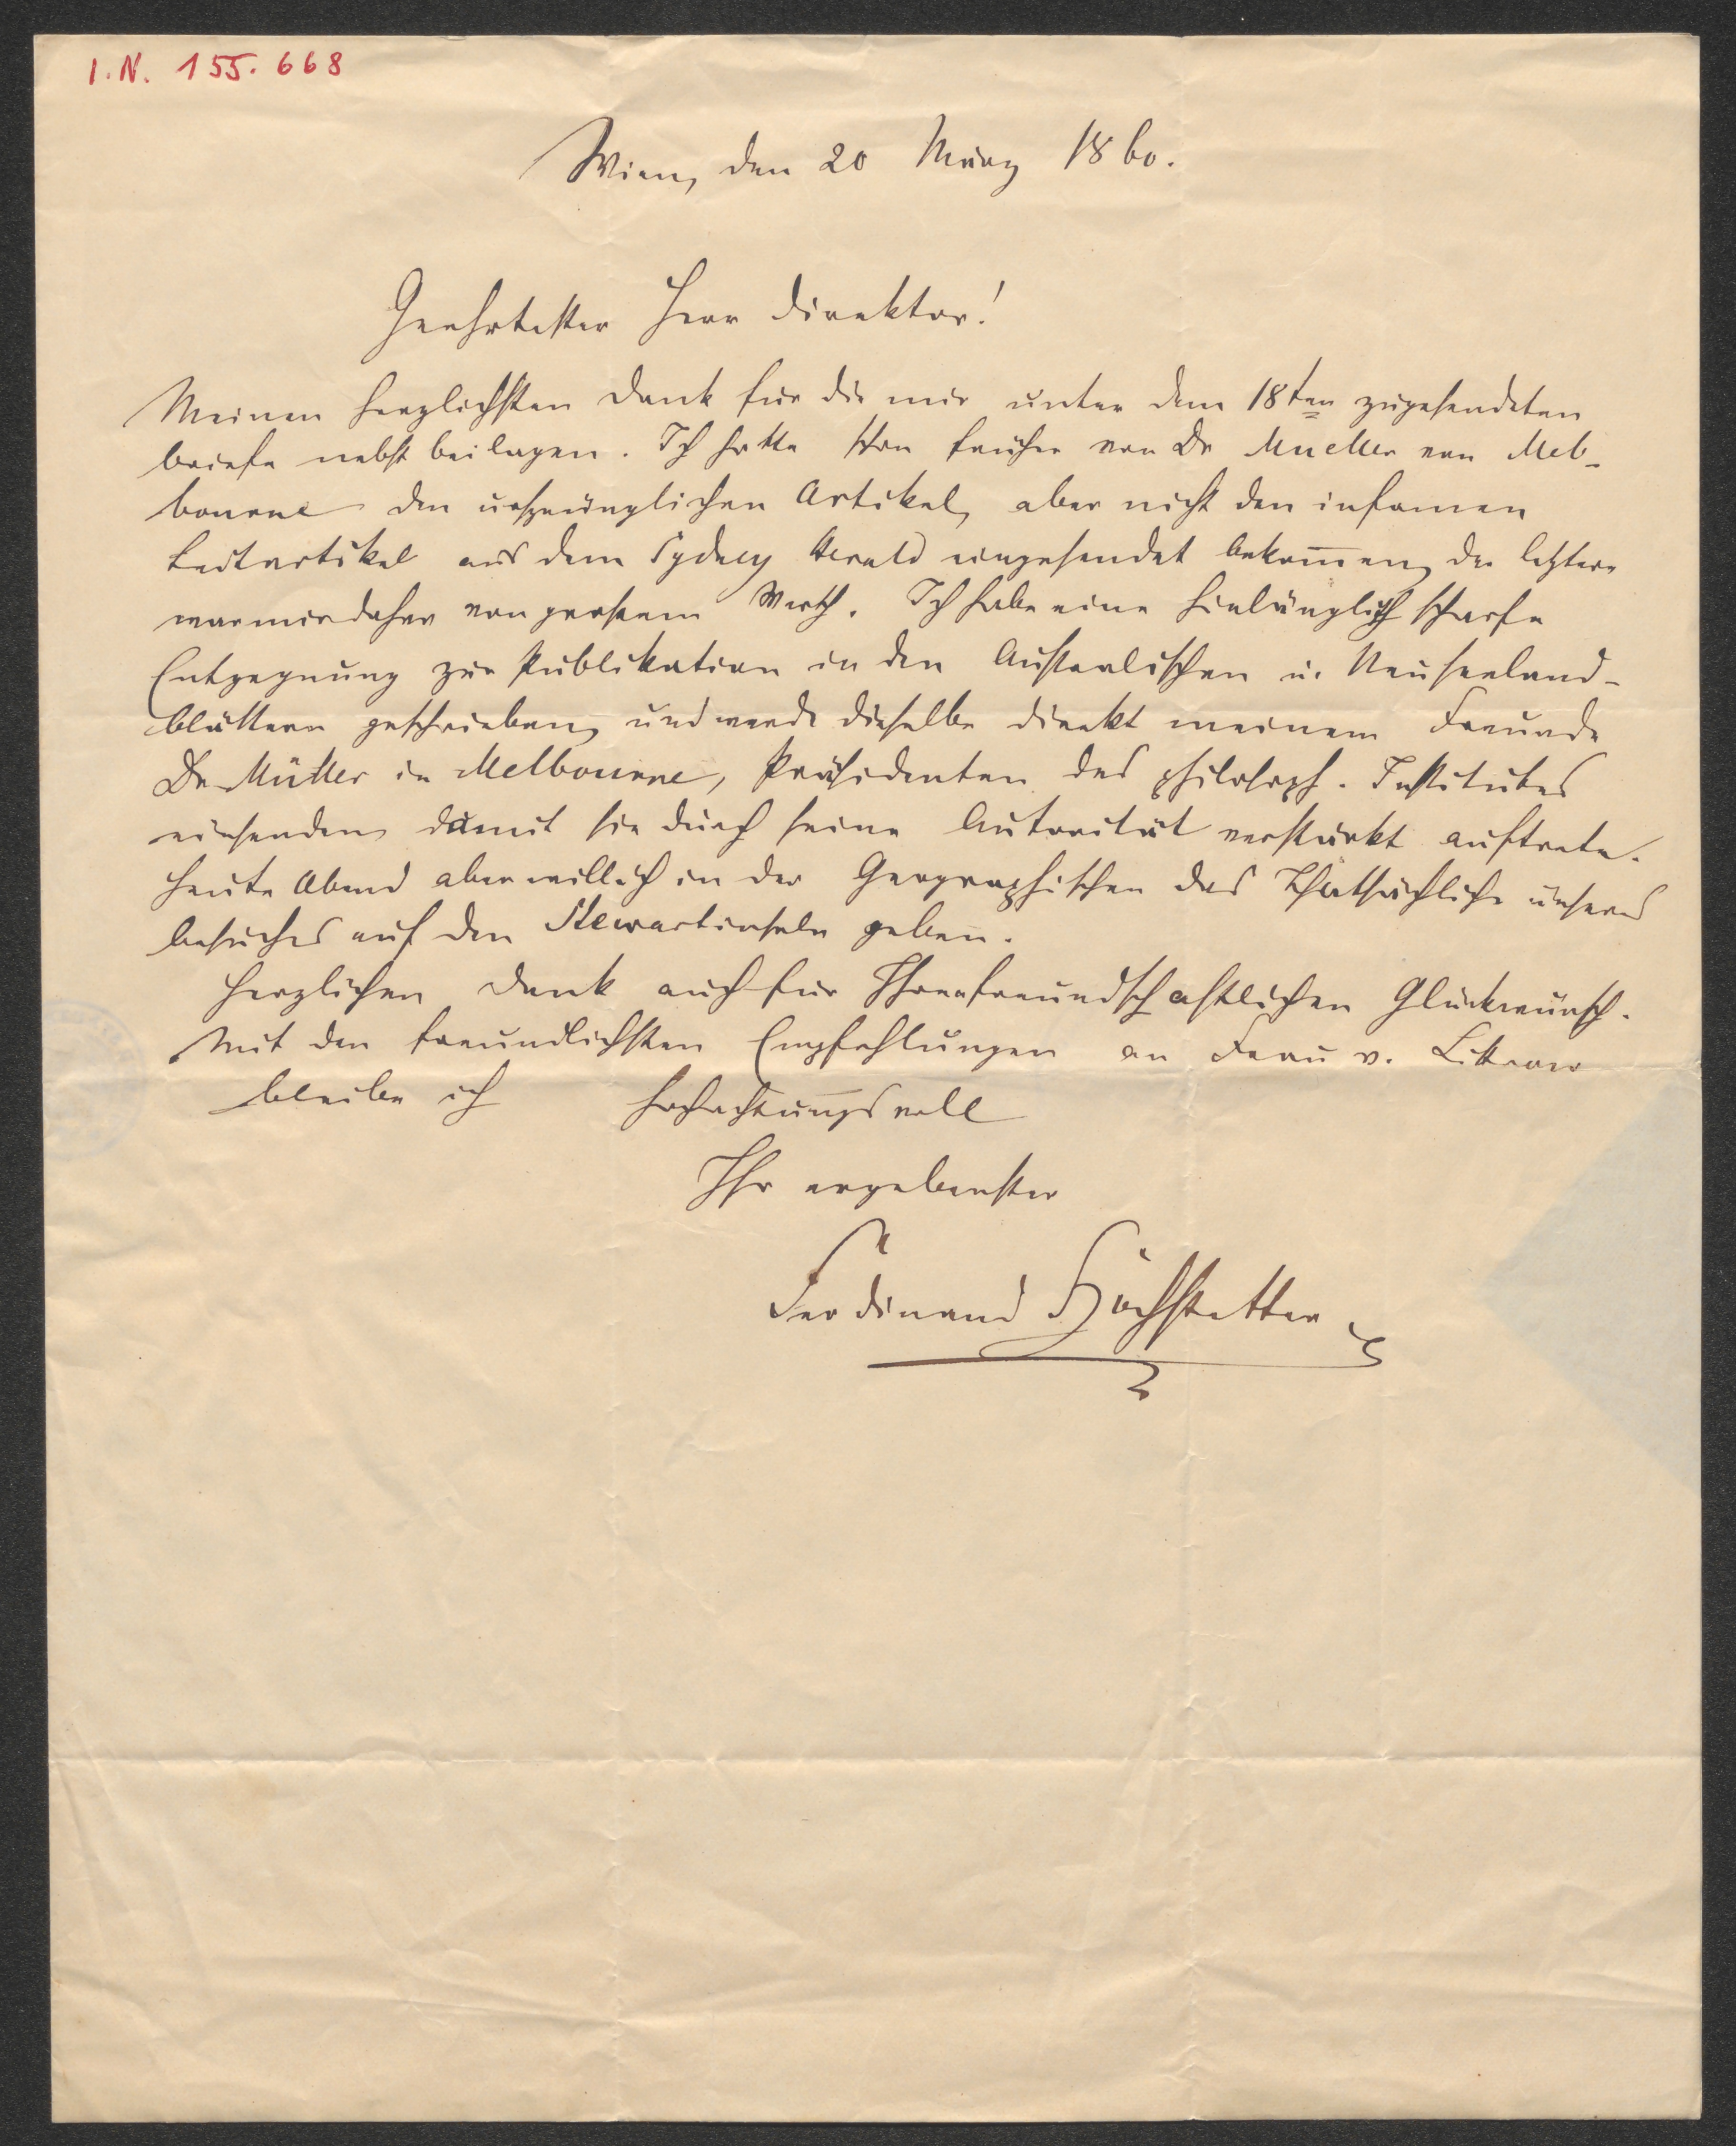 I.N. 155.668
Wien, den 20 März 1860.
Geehrtester Herr Direktor!
Meinen herzlichsten Dank für die mir unter dem 18ten zugesendeten
briefe nebst beilagen. Ich hatte schon früher von Dr Mueller von Mel-
bourne den ursprünglichen Artikel, aber nicht den infamen
Leitartikel aus dem Sydney Herald eingesendet bekom̅en, der letztere
war mir daher von großem Werth. Ich habe eine hinlänglich scharfe
Entgegnung zur Publikation in den Australischen u. Neuseeland-
blättern geschrieben, und werde dieselbe direkt meinem Freunde
Dr Müller in Melbourne, Präsidenten des philosoph. Institutes
einsenden, damit sie durch seine Autorität verstärkt auftrete.
Heute Abend aber will ich in der Geographischen das Thatsächliche unseres
besuches auf den Stewartinseln geben.
Herzlichen Dank auch für Ihren freundschaftlichen Glückwunsch.
Mit den freundlichsten Empfehlungen an Frau v. Littrow
bleibe ich hochachtungsvoll
Ihr ergebenster
Ferdinand Hochstetter